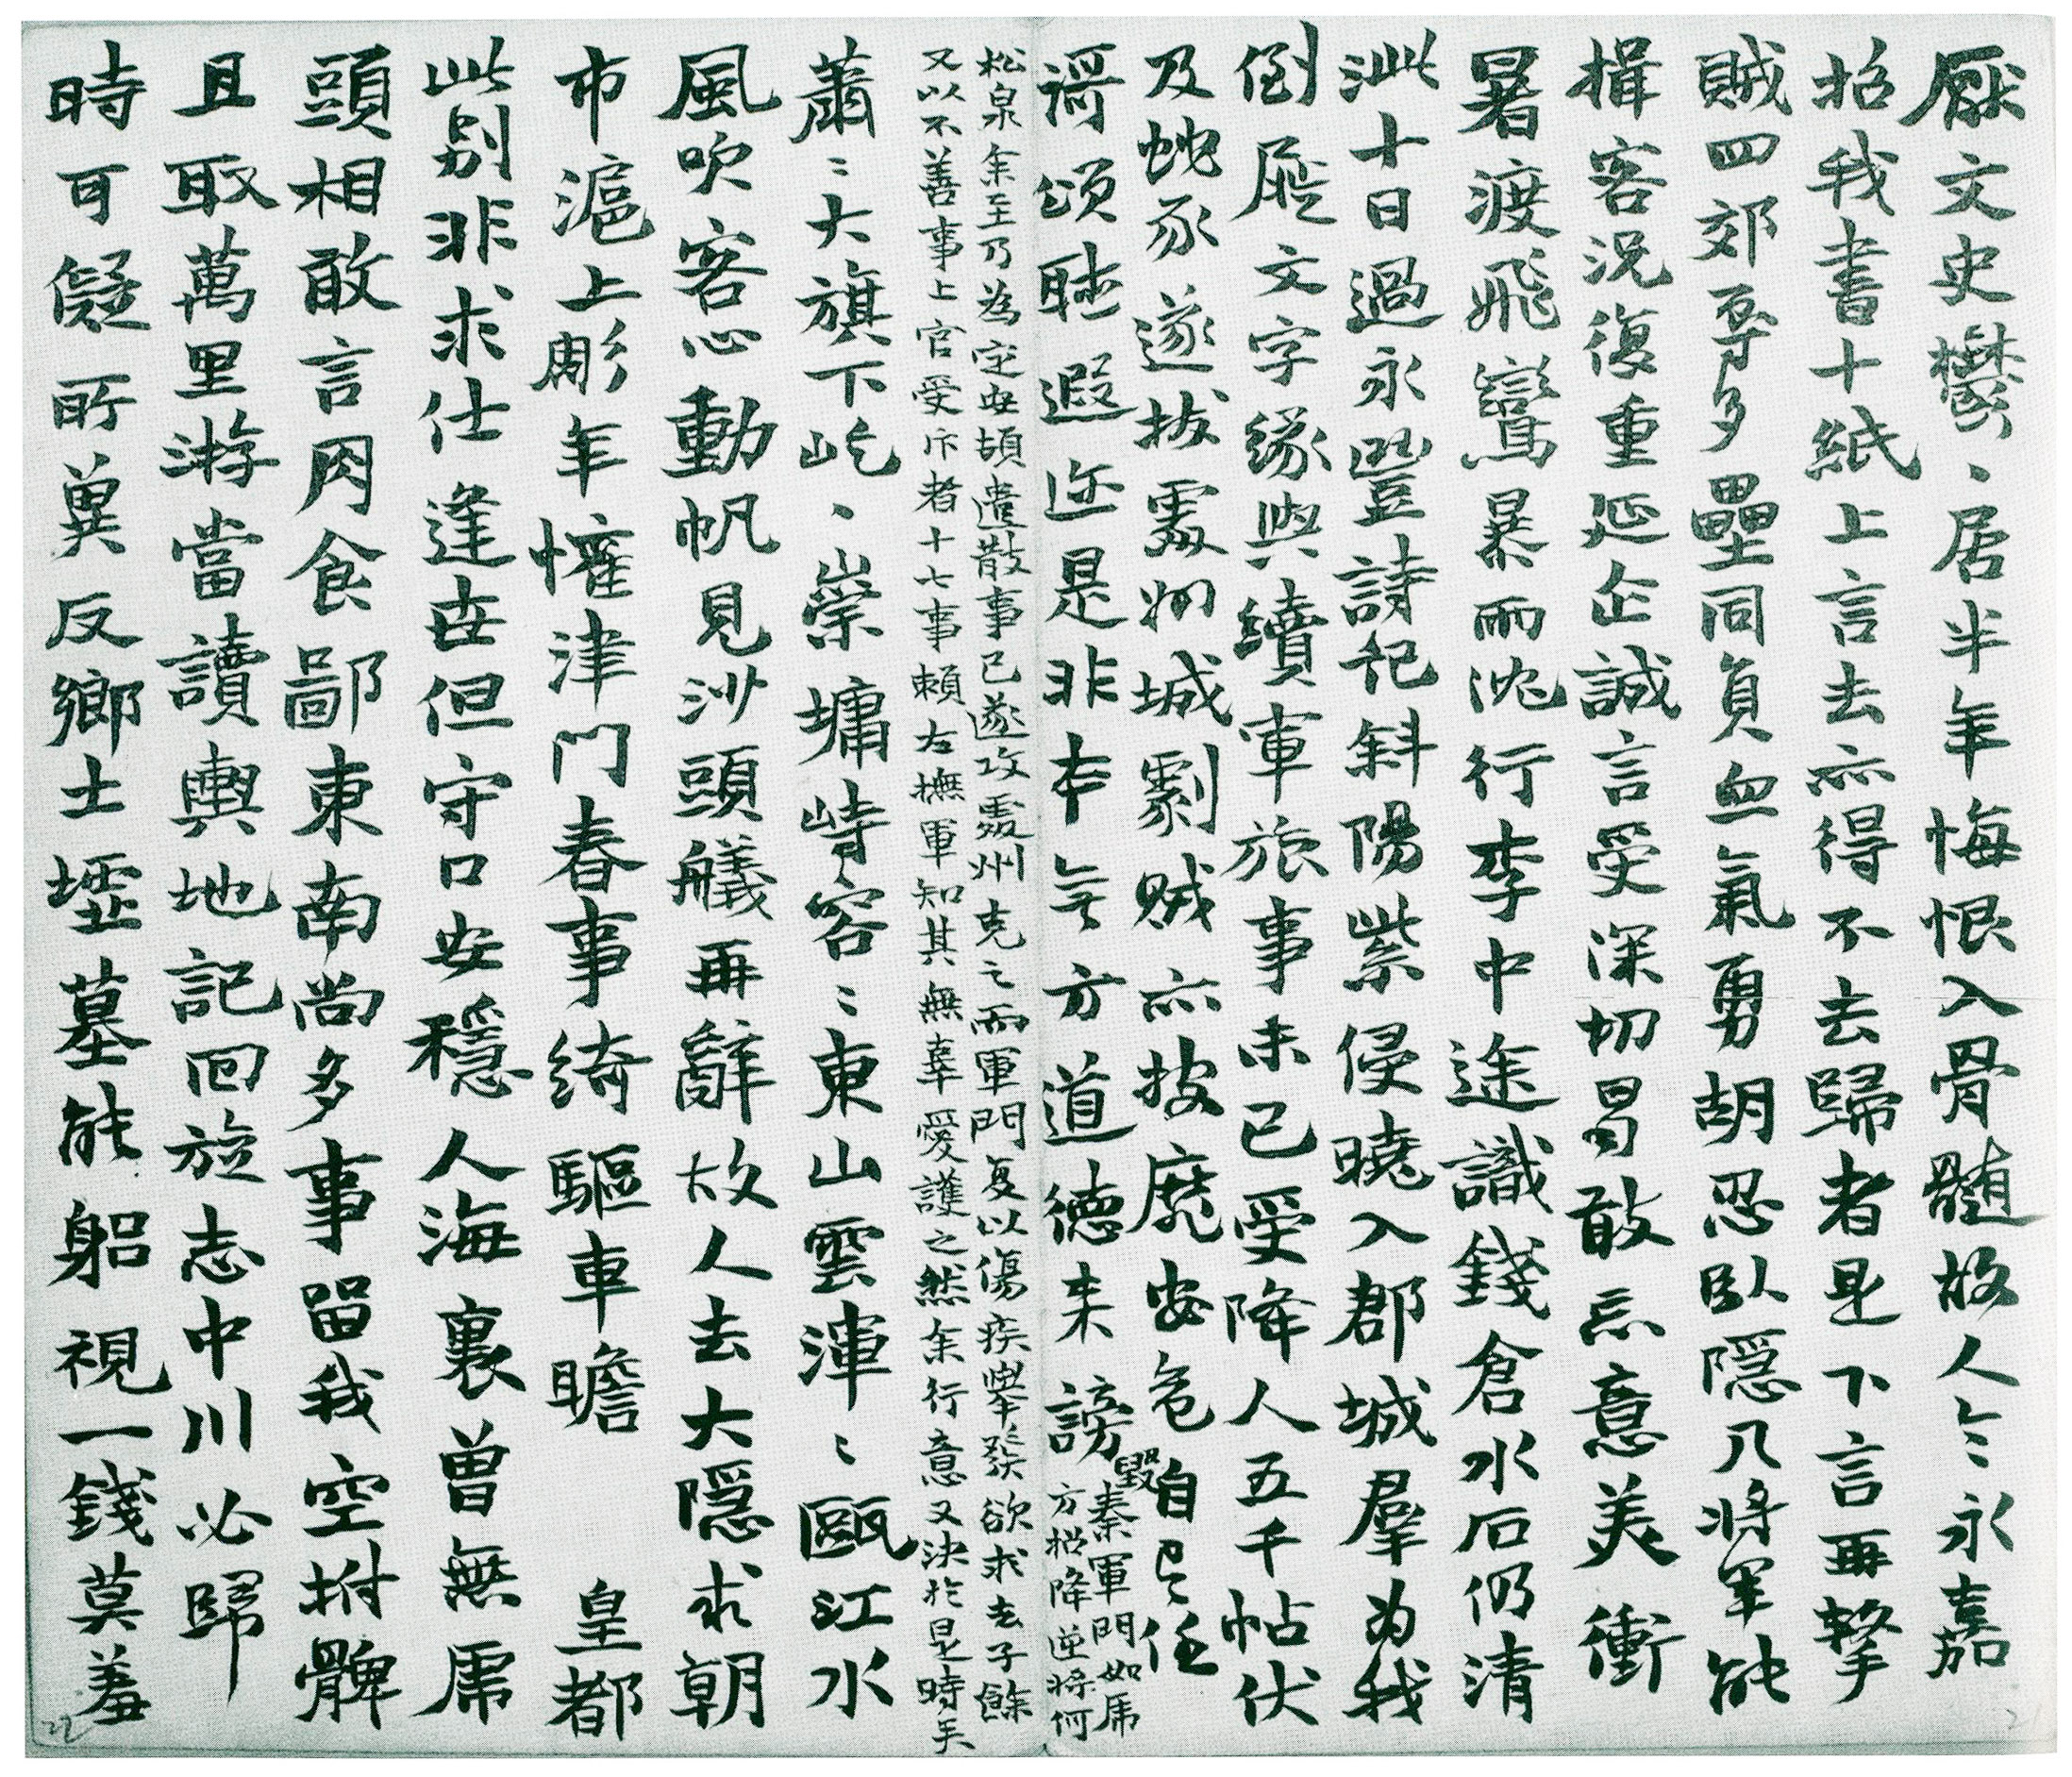 厭文史鬱、居半年悔恨入骨髓故人人永嘉
招我書十紙上言去亦得不去歸者是下言再擎
賊四郊辱多壘同負血氣勇胡忍臥隱几將軍能
揖客況復重延企誠言受深切曷敢忘意美衝
暑渡飛鸞暴雨沈行李中途識錢倉水石仍清
泚十日過永豐詩記斜陽紫侵曉入郡城羣為我
倒屣文字緣與續軍旅事未已受降人五千帖伏
及蛇豕遂拔處州城劇賊亦披靡安危自己任
謌頌聴遐迩是非本無方道德来謗毀
秦軍門如虎
方招降逆將何
松泉余至乃為定安頓遣散事已遂攻處州克之而軍門复以傷疾舉發欲求去子餘
又以不善事上官受斥者十七事賴左撫軍知其無辜愛護之然余行意又決於是時矣
蕭〻大旗下屹、崇墉峙容〻東山雲渾〻甌江水
風吹客心動帆見沙頭艤再辭故人去大隱求朝
市滬上彫年慛津門春事綺驅車瞻 皇都
此别非求仕逢世但守口安穩人海裏曾無虎
頭相敢言肉食鄙東南尚多事留我空拊髀
且取萬里游當讀輿地記回旋志中川必歸
時可儗所冀反鄉土壝墓能躬視一錢莫羞